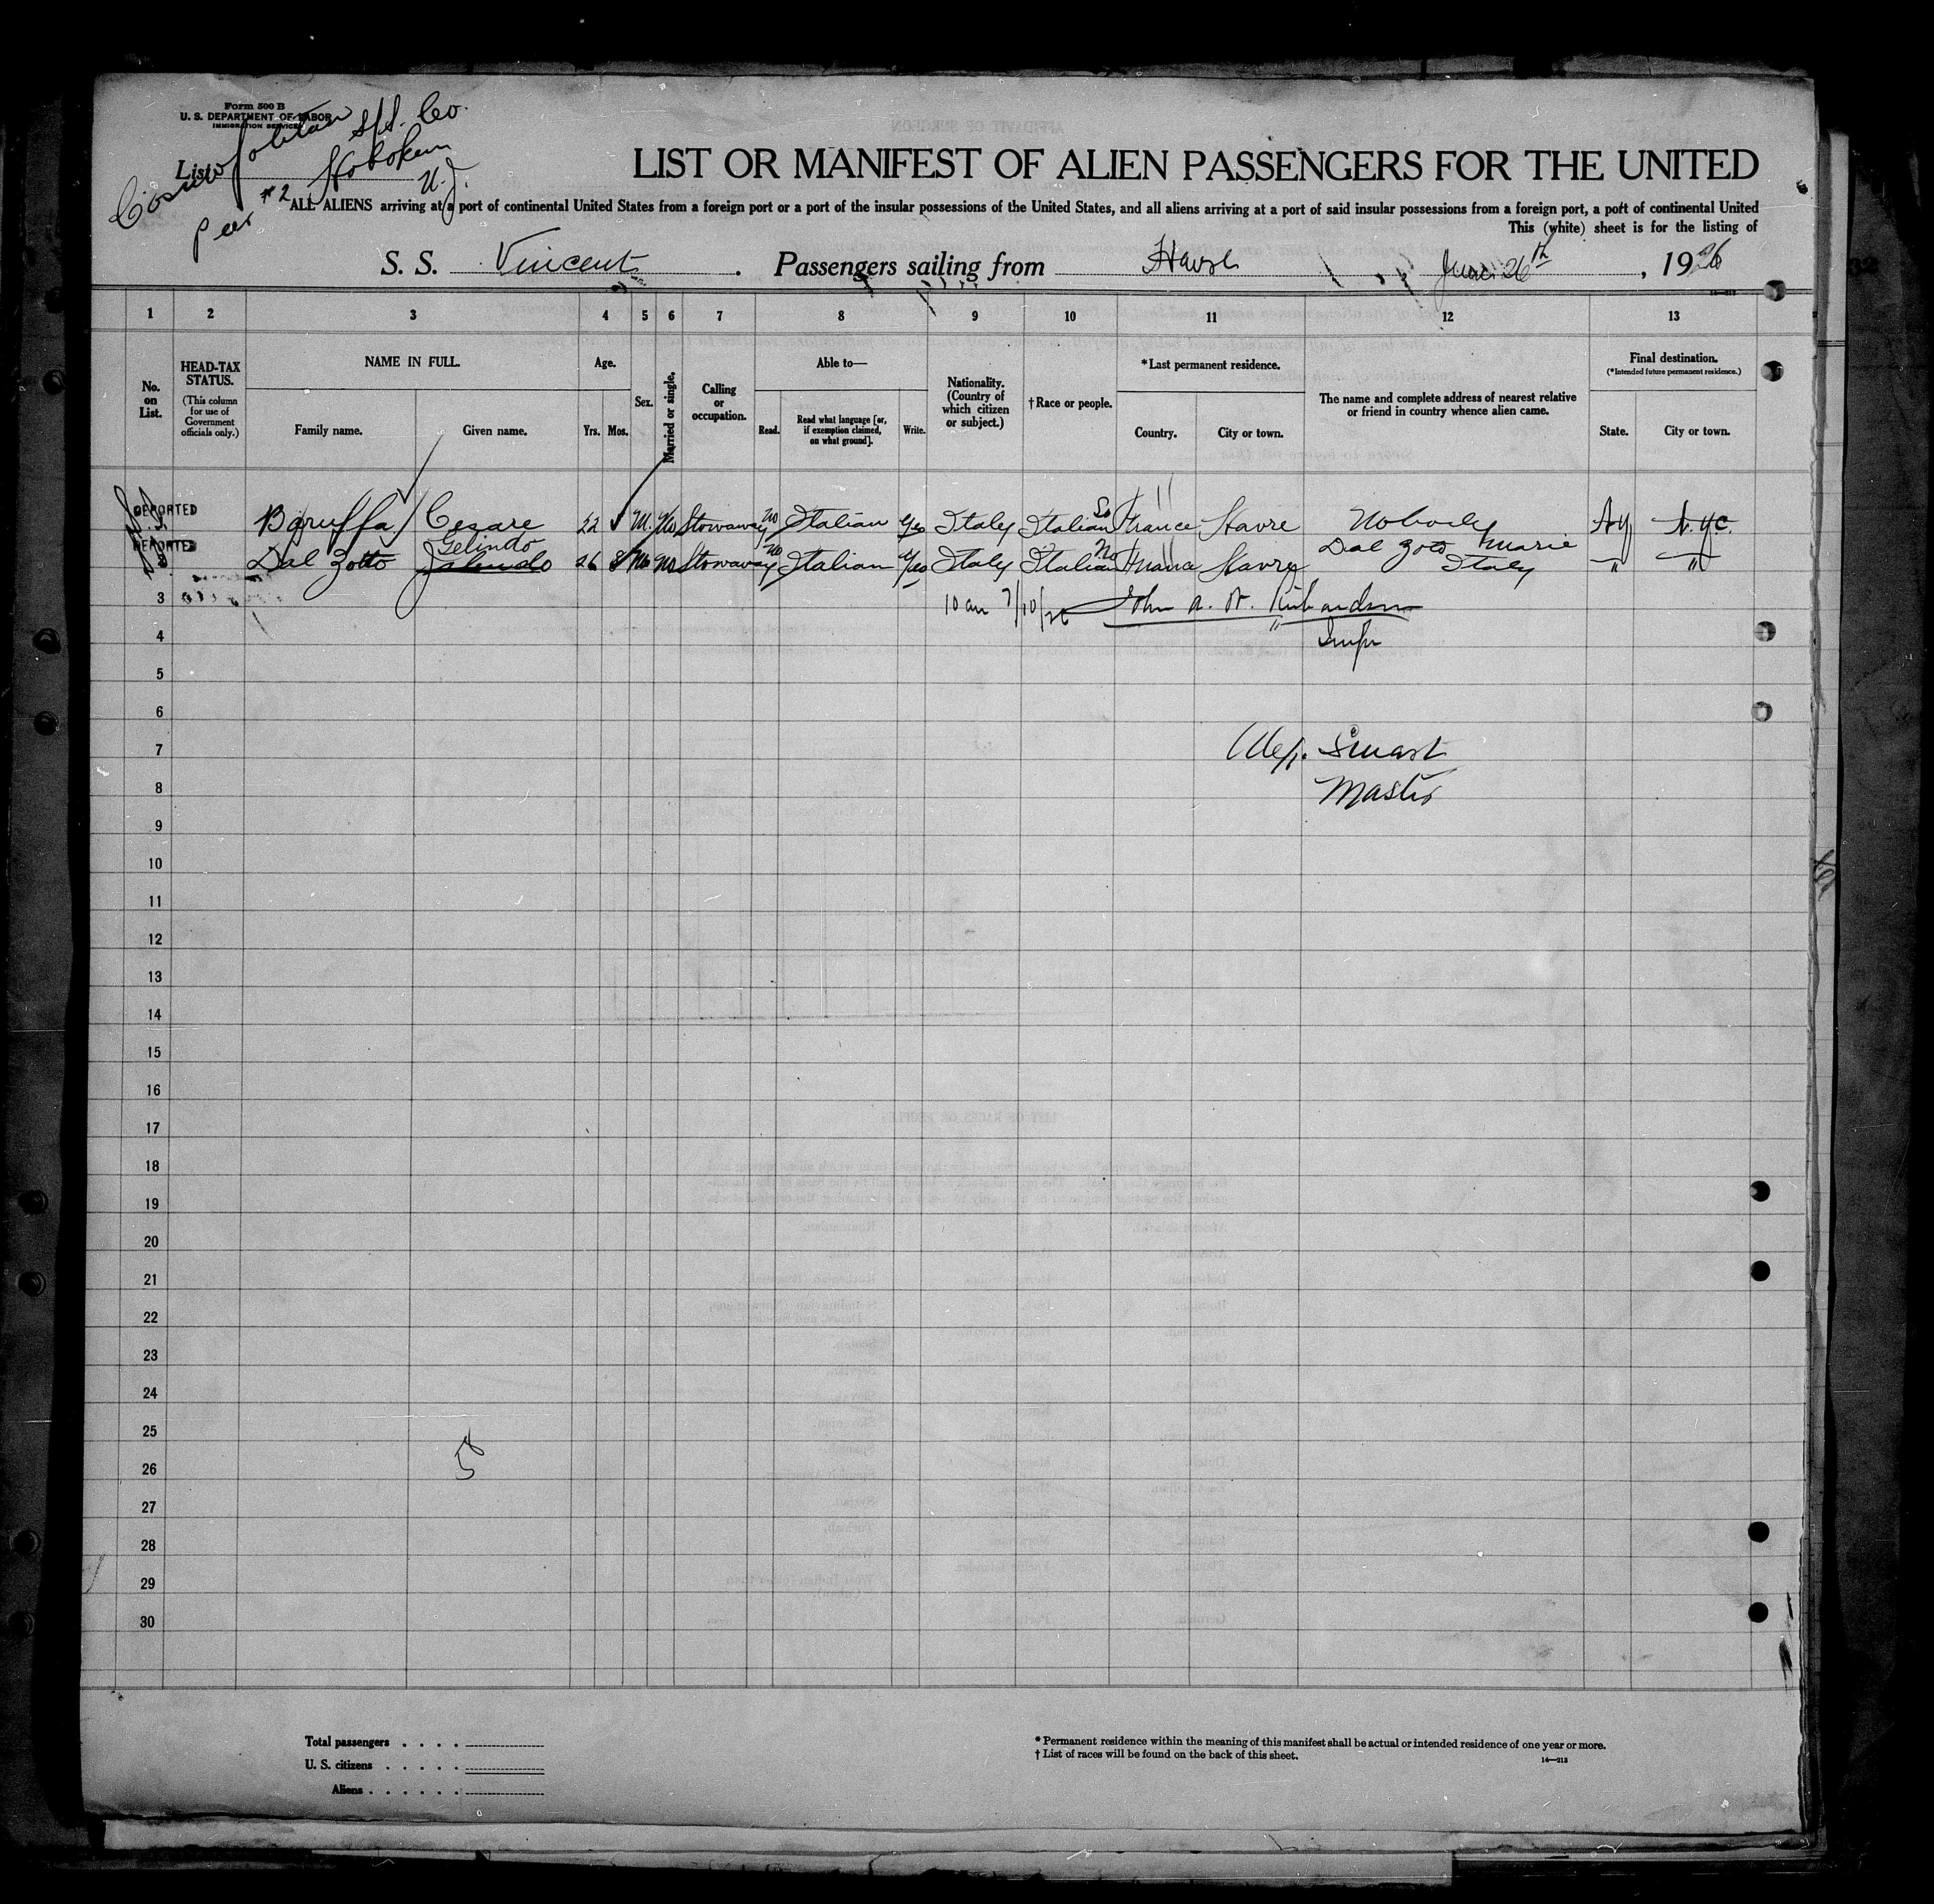 Form 500 B
U. S. DEPARTMENT OF LABOR
IMMIGRATION SERVICE
List
Cosmopolitan S/S. Co.
Hoboken
Pier #2 N.J.
LIST OR MANIFEST OF ALIEN PASSENGERS FOR THE UNITED
ALL ALIENS arriving at a port of continental United States from a foreign port or a port of the insular possessions of the United States, and all aliens arriving at a port of said insular possessions from a foreign port, a port of continental United
This (white) sheet is for the listing of
S. S. Vincent . Passengers sailing from Havre June 26th , 1926
1 2 3 4 5 6 7 8 9 10 11 12 13
No. on List.
HEAD-TAX STATUS.
(This column for use of Government officials only.)
NAME IN FULL.
Family name. Given name.
Age.
Yrs. Mos.
Sex.
Married or single.
Calling or occupation.
Able to—
Read. Read what language [or, if exemption claimed, on what ground]. Write.
Nationality. (Country of which citizen or subject.)
†Race or people.
*Last permanent residence.
Country. City or town.
The name and complete address of nearest relative or friend in country whence alien came.
Final destination.
(*Intended future permanent residence.)
State. City or town.
DEPORTED Baruffa Cesare 22 M. Stowaway Italian Yes Italy Italian So France Havre Nobody N.Y. N.Y.C.
Gelindo
DEPORTED Dal Zotto 26 8 Stowaway Italian Yes Italy Italian No France Havre Dal Zotto Marie Italy " "
3 10 am 7/10/26 John A. W. Richardson
4 Insp
5
6
7 Alex. Smart
8 Master
9
10
11
12
13
14
15
16
17
18
19
20
21
22
23
24
25
26
27
28
29
30
Total passengers . . . .
U. S. citizens . . . . .
Aliens . . . . . .
* Permanent residence within the meaning of this manifest shall be actual or intended residence of one year or more.
† List of races will be found on the back of this sheet.
14—213